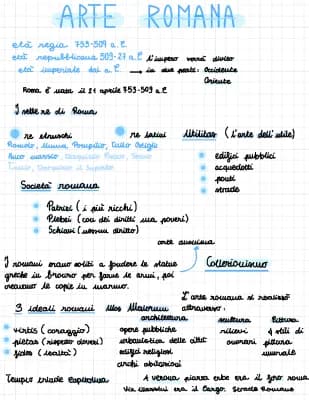 ARTE ROMANA
età regia 753-509 a.C
età repubblicana 509-27 a.C
l'impero verrà diviso
età imperiale dal a.C → in due parti: Occidente
Oriente
Roma è nata il 21 aprile 753 a.C
I sette re di Roma
re etruschi
re latini
Utilitas (l'arte dell'utile)
Romolo, Numa Pompilio, Tullo Ostilio
Anco Marzio, Tarquinio Prisco, Servio
Tullio, Tarquinio il Superbo
edifici pubblici
acquedotti
ponti
strade
Società romana
Patrizi (i più ricchi)
Plebei (con dei diritti ma poveri)
Schiavi (nessun diritto)
I romani erano soliti a fondere le statue
greche in bronzo per farne le armi, poi
creavano le copie in marmo.
Collezionismo
L'arte romana si realizzò
attraverso:
3 ideali romani
Mos Maiorum
architettura
scultura
Pittura
virtus (coraggio)
opere pubbliche
rilievi
4 stili di
pietas (rispetto doveri)
urbanistica delle città
onorari
pittura
fides (lealtà)
edifici religiosi
murale
archi
abitazioni
Tempio triade Capitolina
A verona piazza erbe era il foro romano